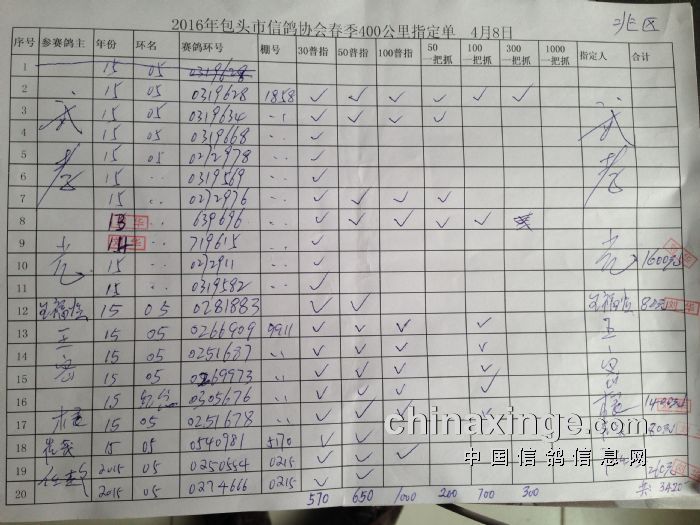 2016年包头市信鸽协会春季400公里指定单 4月8日 北区
序号 参赛鸽主 年份 环名 赛鸽环号 棚号 30普指 50普指 100普指 50一把抓 100一把抓 300一把抓 1000一把抓 指定人 合计
1 15 05 0319628
2 15 05 0319628 1858 ✓ ✓ ✓ ✓ ✓ ✓
3 武 15 05 0319634 .. ✓ ✓ ✓ ✓ 武
4 15 05 0319668 .. ✓
5 老 15 05 0212978 .. ✓ 老
6 15 .. 0319569 .. ✓
7 15 .. 0212976 .. ✓ ✓ ✓ ✓
8 13 .. 639696 .. ✓ ✓ ✓ ✓ ✓
9 14 .. 719615 .. ✓
10 15 .. 0212911 .. ✓ 1600元
11 15 .. 0319582 .. ✓
12 15 05 0281883 ✓ ✓ 80元
13 王 15 05 0266909 0911 ✓ ✓ ✓ ✓ 王
14 15 05 0251687 .. ✓ ✓ ✓ ✓
15 15 05 0269973 .. ✓ ✓ ✓ ✓
16 15 0305676 .. ✓ ✓ ✓ ✓
17 15 05 0251678 .. ✓ ✓ ✓
18 15 05 0540981 5170 ✓ ✓
19 2015 05 0250554 0215 ✓ ✓ ✓
20 2015 05 0274666 0215 ✓ ✓ ✓
570 650 1000 200 700 300 共: 3420
chinaxinge.com
中国信鸽信息网